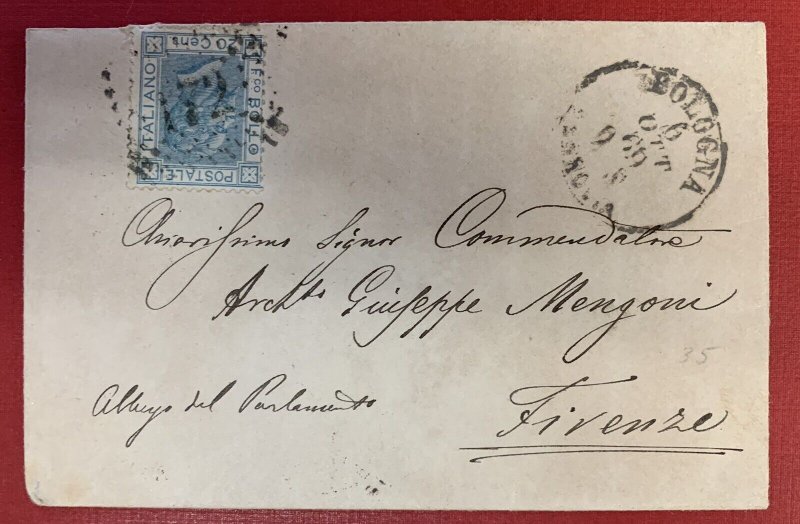 20 Cent
Fco BOLLO
POSTALE
ITALIANO
BOLOGNA
6
OTT
69
Chiarissimo Signor Commendatore
Archto Giuseppe Mengoni
35
Albergo del Parlamento
Firenze